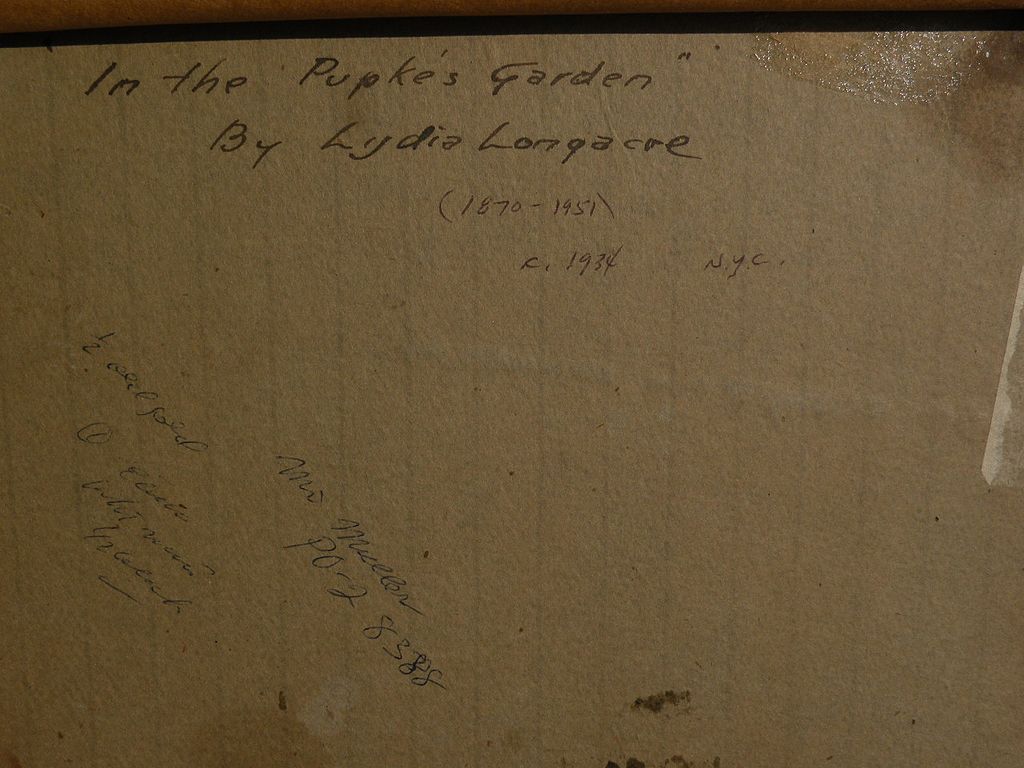 In the Pupke's Garden"
By Lydia Longacre
(1870-1951)
c. 1934 N.Y.C.
Mr Muller
PO-2 8388